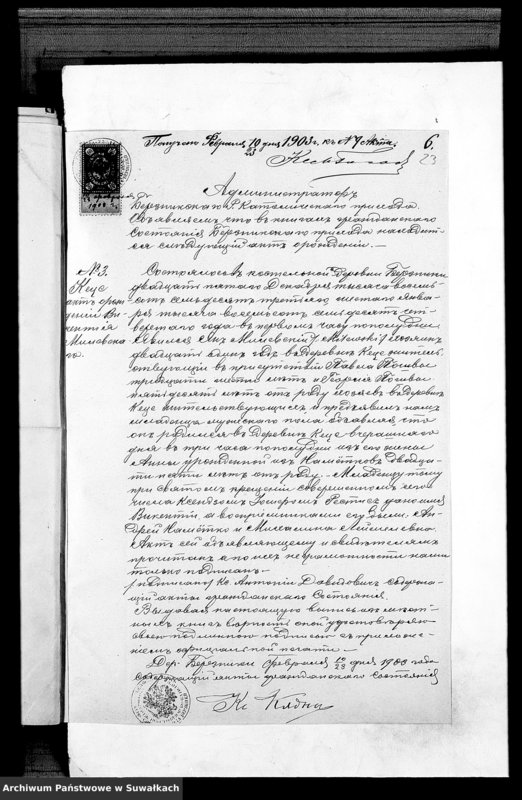 Получено Февраля 10/23 дня 1903 г. къ № 7 акта.
6.
23
Администраторъ
Березникскаго Р. Католическаго прихода
Объявляемъ, что въ книгахъ гражданскаго
состоянія Березникскаго прихода находит-
ся слѣдующій актъ о рожденіи. —
№ 3.
Кеце
актъ о рож-
деніи Ви-
кентія
Милевска-
го.
Состоялось въ костельной деревни Березники
двадцать пятаго Декабря тысяча восемь-
сотъ семьдесятъ третьяго шестаго Янва-
ря тысяча восемьсотъ семьдесятъ чет-
вертаго года въ первомъ часу пополудни
Явился Милевскій /Milewski/ хозяинъ
двадцати одинъ годъ въ деревни Кеце житель-
ствующій въ присутствіи Павла
тридцати лѣтъ и
пятидесяти лѣтъ отъ роду хозяевъ въ деревни
Кеце жительствующихъ и предъявилъ намъ
младенца мужескаго пола объявляя что
онъ родился въ деревни Кеце вчерашняго
дня въ три часа пополудни изъ его жены
Анны урожденной изъ двадца-
ти пяти лѣтъ отъ роду. Младенцу тому
при святомъ крещеніи совершенномъ сего
числа Ксендзомъ Іосифомъ дано имя
Викентій а воспріемниками его были Ан-
дрей и Маріанна
Актъ сей объявляющему и свидѣтелямъ
прочитанъ а по ихъ неграмотности нами
только подписанъ —
/подписано/ Кс. Антоній Давидовичъ Содержа-
щій акты гражданскаго состоянія.
Выдавая настоящую выпись изъ мѣст-
ныхъ книгъ вѣрность оной удостовѣряю
своею подлинною подписью съ приложе-
ніемъ официальной печати —
Дер. Березники Февраля 10/23 дня 1903 года
Содержащій акты гражданскаго состоянія
Кс
Archiwum Państwowe w Suwałkach